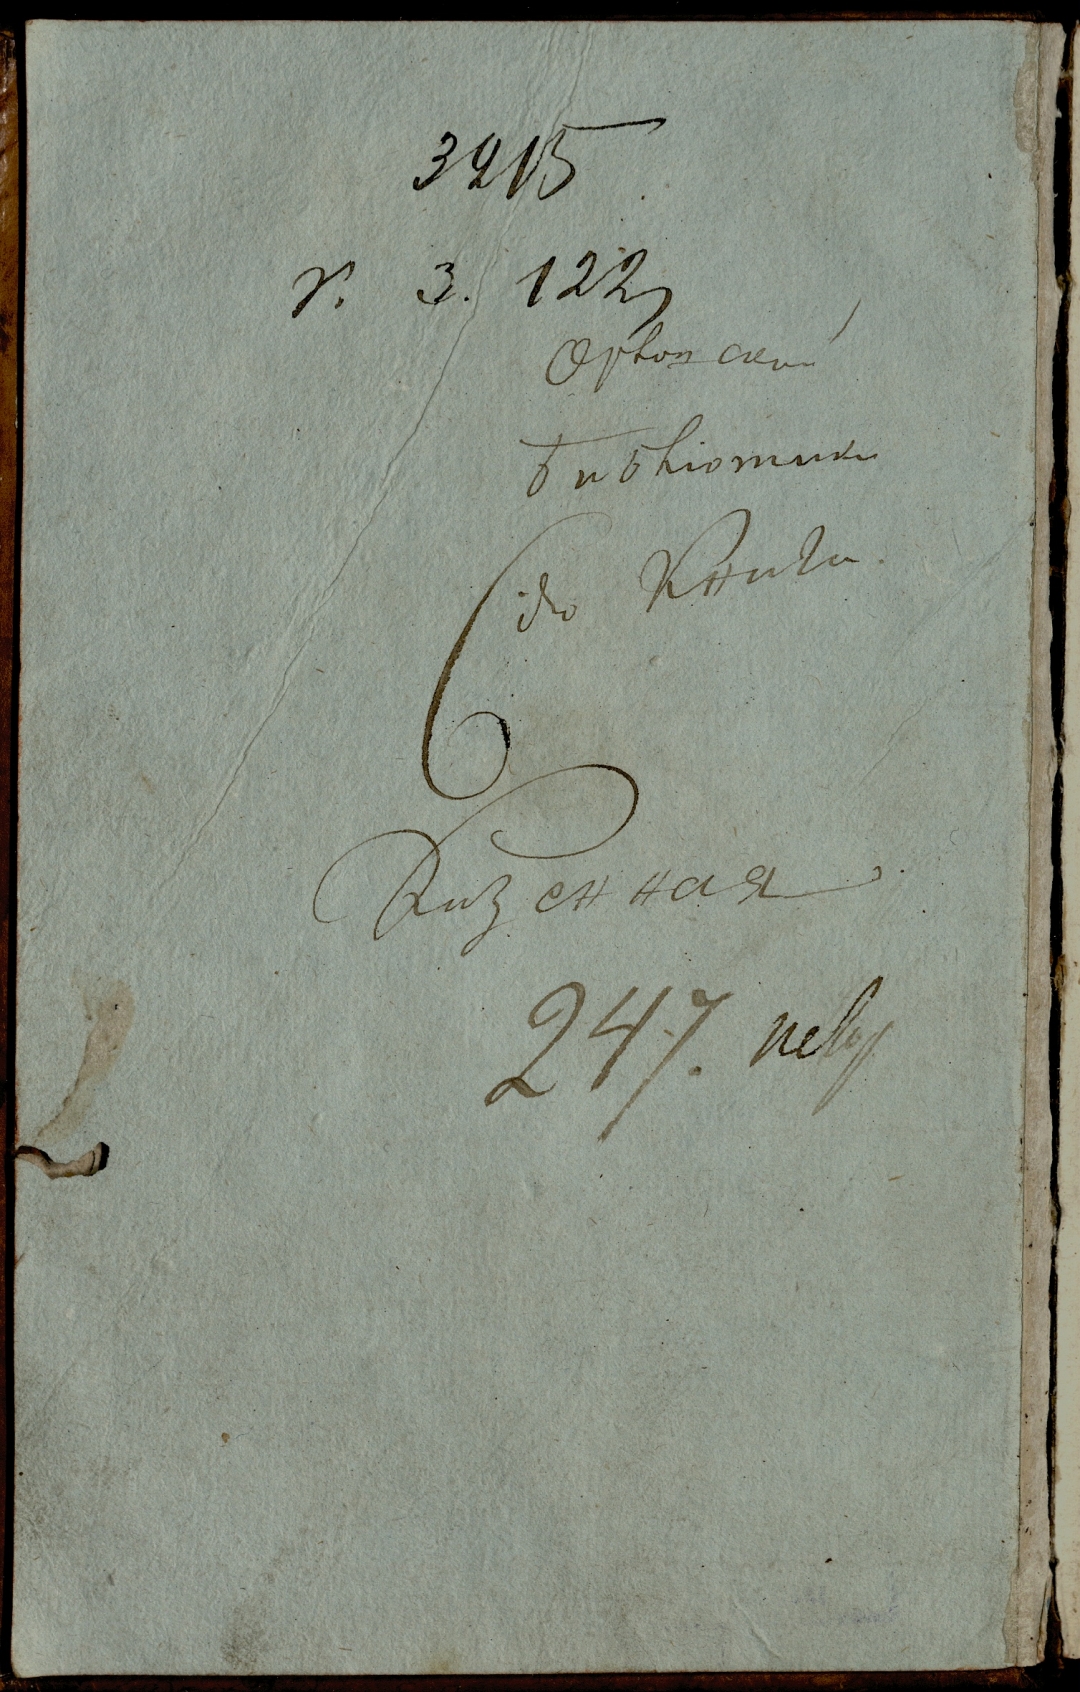 3215
г. 3. 122
Орловской
библіотики
Сію Книги.
Казенная
247.